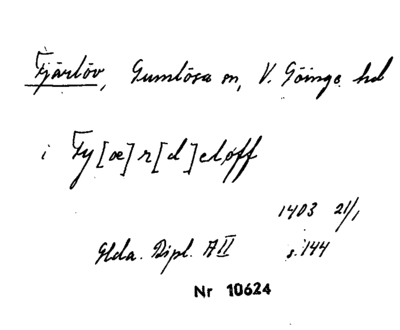 Fjärlöv, Gumlösa sn, V. Göinge hd
i Fy[œ]r[d]eløff
1403 21/1
Glda. Dipl. A II s. 144
Nr 10624